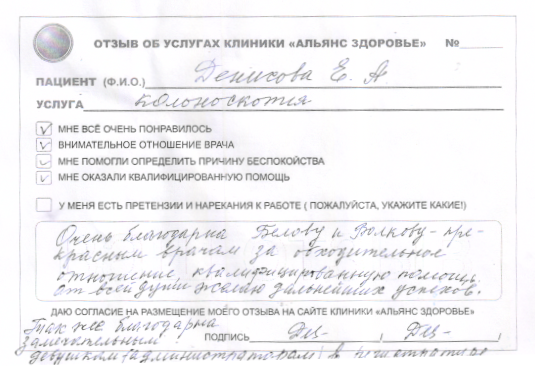 ОТЗЫВ ОБ УСЛУГАХ КЛИНИКИ «АЛЬЯНС ЗДОРОВЬЕ» №
ПАЦИЕНТ (Ф.И.О.) Денисова Е. А
УСЛУГА колоноскопия
МНЕ ВСЁ ОЧЕНЬ ПОНРАВИЛОСЬ
ВНИМАТЕЛЬНОЕ ОТНОШЕНИЕ ВРАЧА
МНЕ ПОМОГЛИ ОПРЕДЕЛИТЬ ПРИЧИНУ БЕСПОКОЙСТВА
МНЕ ОКАЗАЛИ КВАЛИФИЦИРОВАННУЮ ПОМОЩЬ
У МЕНЯ ЕСТЬ ПРЕТЕНЗИИ И НАРЕКАНИЯ К РАБОТЕ ( ПОЖАЛУЙСТА, УКАЖИТЕ КАКИЕ!)
Очень благодарна Белову и Волкову - пре-
красным врачам за обходительное
отношение, квалифицированную помощь.
От всей души желаю дальнейших успехов.
ДАЮ СОГЛАСИЕ НА РАЗМЕЩЕНИЕ МОЕГО ОТЗЫВА НА САЙТЕ КЛИНИКИ «АЛЬЯНС ЗДОРОВЬЕ»
Так же благодарна
замечательным ПОДПИСЬ
девушкам (администраторам) в регистратуре